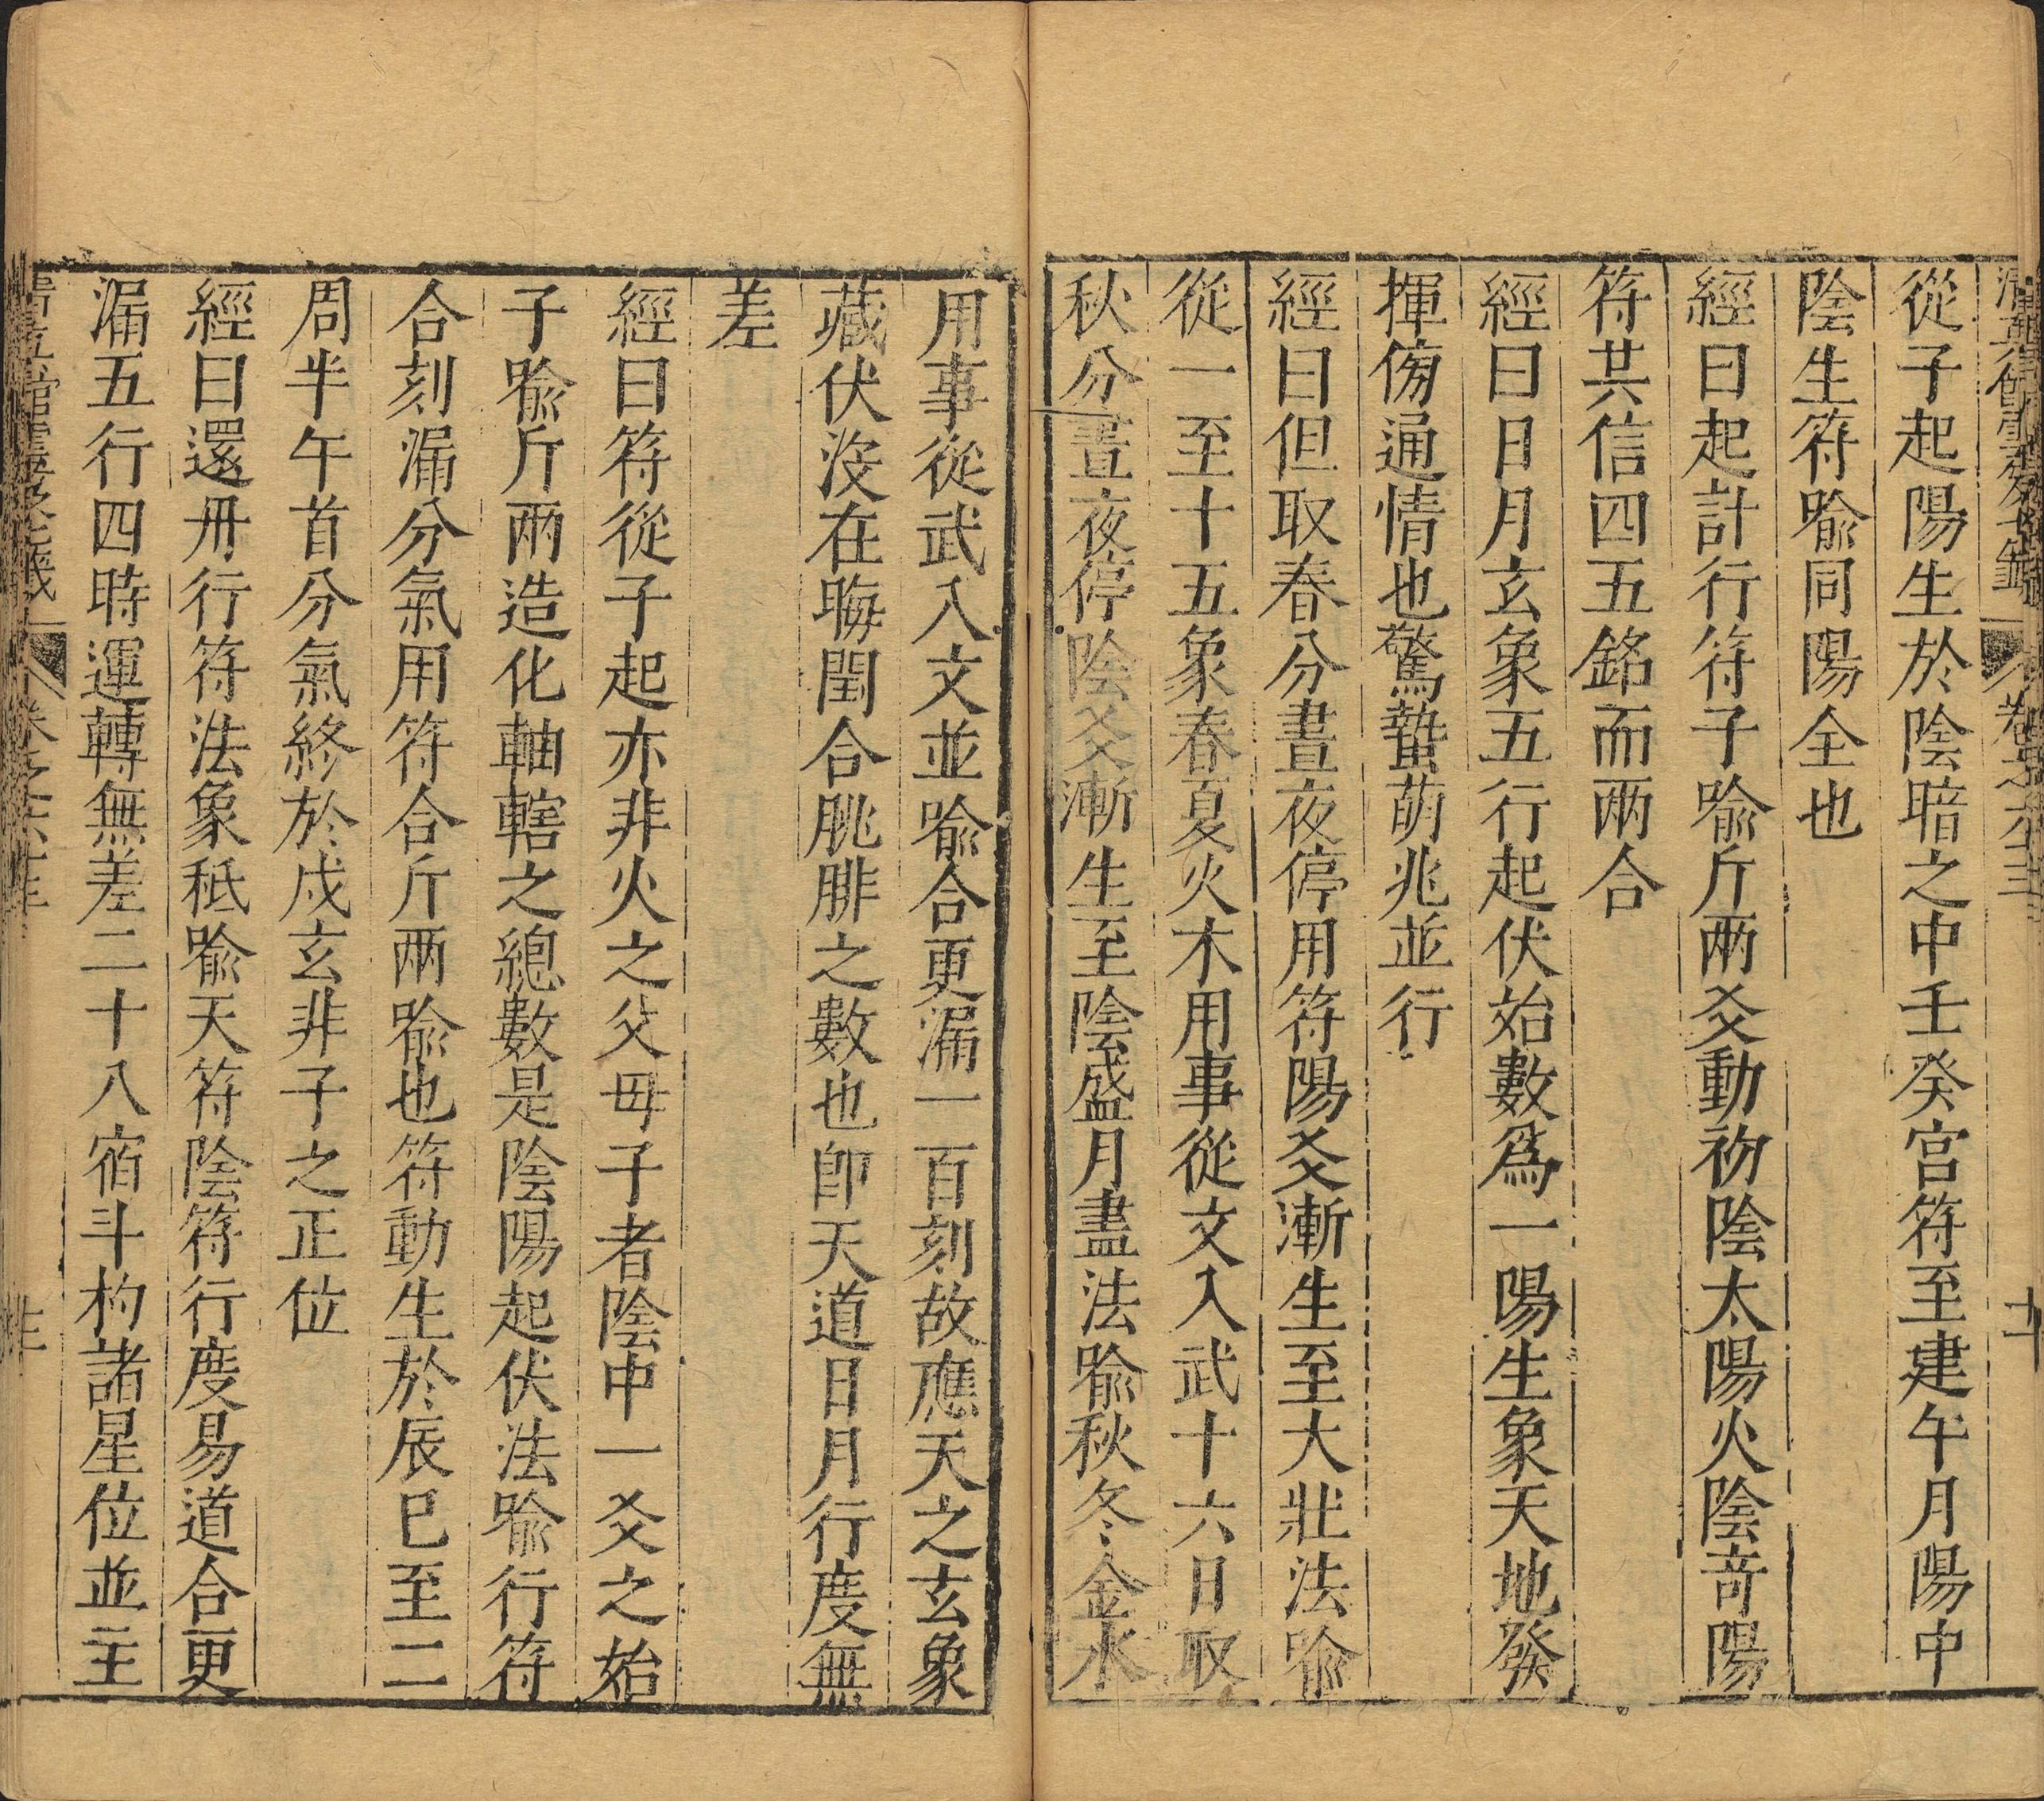 從子起陽生於陰暗之中壬癸宫符至建午月陽中
陰生符喩同陽全也
經曰起計行符子喩斤两爻動初陰太陽火陰竒陽
符其信四五銘而两合
經曰日月玄象五行起伏始數爲一陽生象天地發
揮傍通情也驚蟄萌兆並行
經曰但取春分晝夜停用符陽爻漸生至大壯法喩
從一至十五象春夏火木用事從文入武十六日取
秋分晝夜停陰爻漸生至陰盛月盡法喩秋冬金水
用事從武入文並喩合更漏一百刻故應天之玄象
藏伏沒在晦閏合朓腓之數也卽天道日月行度無
差
經曰符從子起亦非火之父母子者陰中一爻之始
子喩斤两造化軸轄之總數是陰陽起伏法喩行符
合刻漏分氣用符合斤两喩也符動生於辰巳至二
周半午首分氣終於戍玄非子之正位
經曰還丹行符法象秪喩天符陰符行度易道合更
漏五行四時運轉無差二十八宿斗杓諸星位並主
卷之六十五